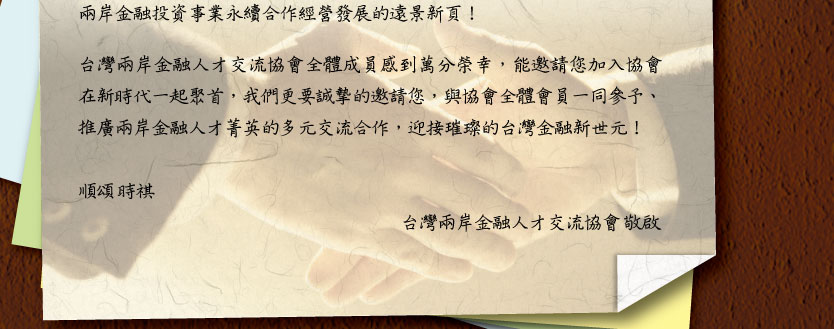 兩岸金融投資事業永續合作經營發展的遠景新頁！
台灣兩岸金融人才交流協會全體成員感到萬分榮幸，能邀請您加入協會
在新時代一起聚首，我們更要誠摯的邀請您，與協會全體會員一同參予、
推廣兩岸金融人才菁英的多元交流合作，迎接璀璨的台灣金融新世元！
順頌時祺
台灣兩岸金融人才交流協會敬啟